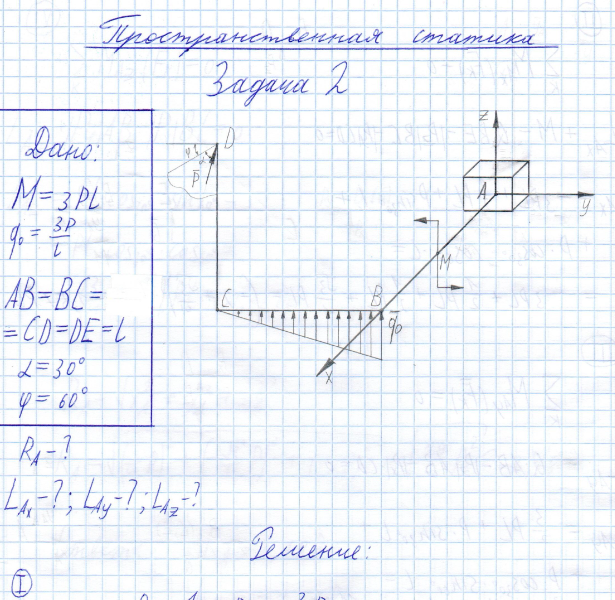 Пространственная статика
Задача 2
Дано:
M = 3PL
q₀ = 3P/L
AB = BC =
= CD = DE = L
α = 30°
φ = 60°
R_A - ?
L_Ax - ?; L_Ay - ?; L_Az - ?
D
φ α
P̄
C
B
q̄₀
M
A
z
y
x
Решение:
I